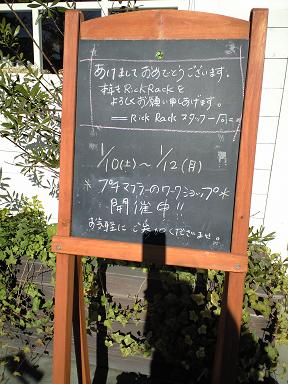 あけましておめでとうございます。
本年もRickRackを
よろしくお願い申しあげます。
== Rick Rack スタッフ一同==
1/10(土)～1/12(月)
*プチマフラーのワークショップ*
開催中!!
お気軽にご参加くださいませ。